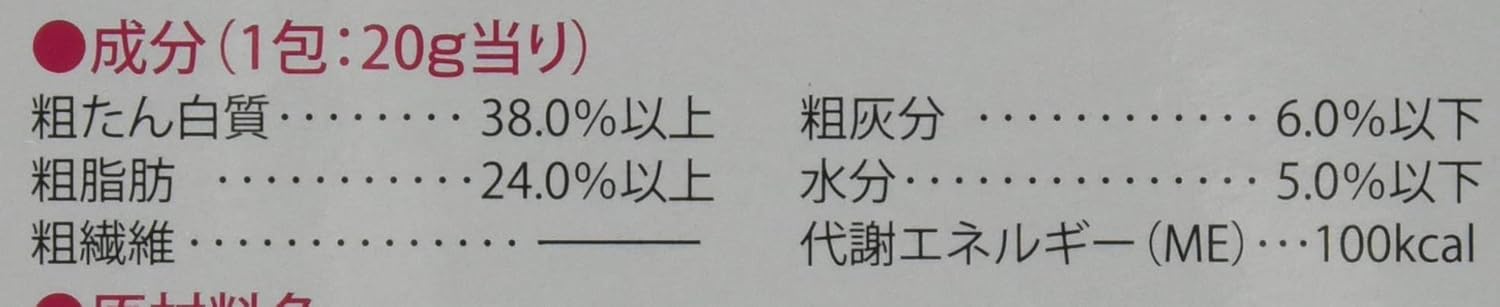 ●成分(1包:20g当り)
粗たん白質········38.0%以上
粗脂肪 ···········24.0%以上
粗繊維··············―――
粗灰分 ············6.0%以下
水分···············5.0%以下
代謝エネルギー(ME)···100kcal
●原材料名